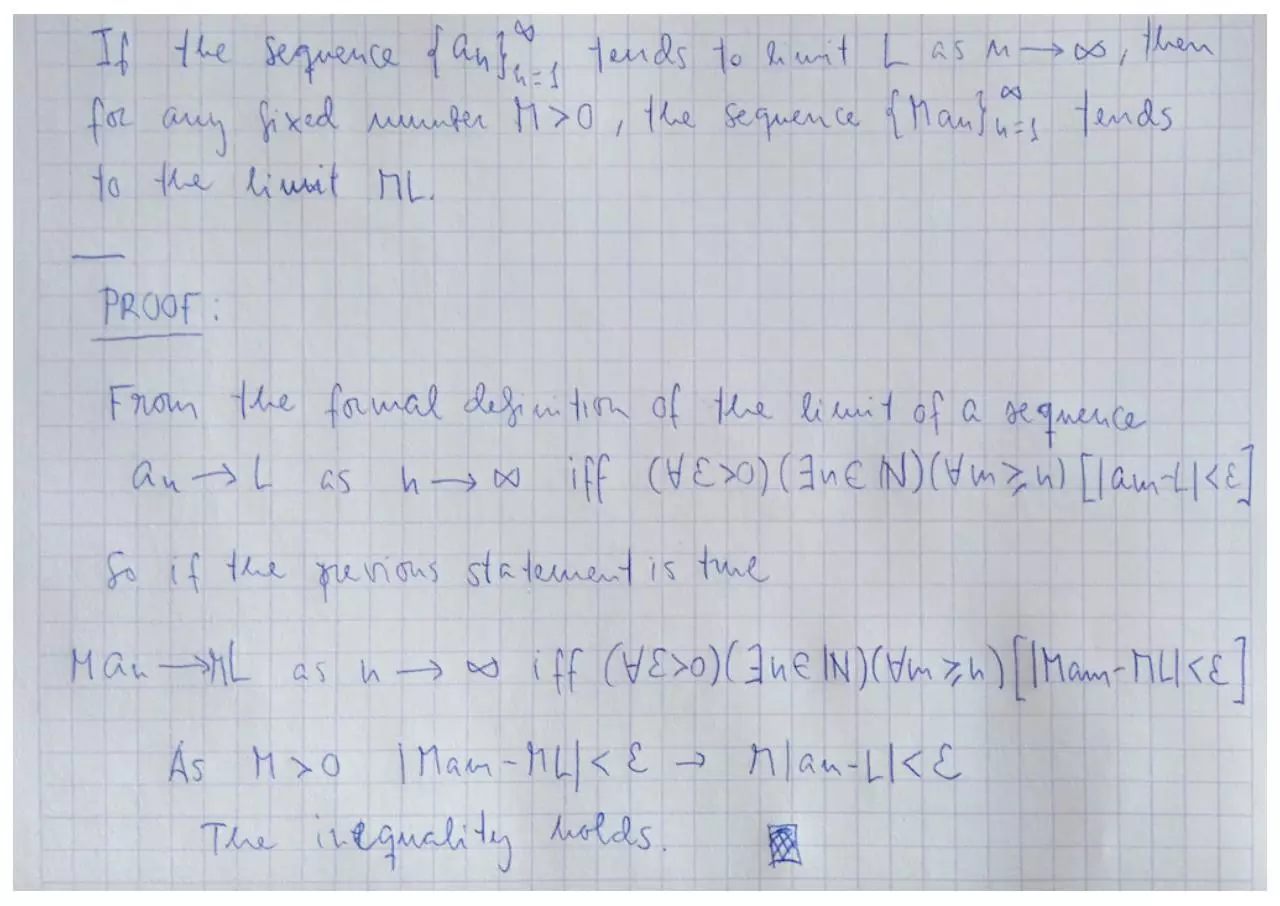 If the sequence {an}∞n=1 tends to limit L as n → ∞, then
for any fixed number M>0, the sequence {Man}∞n=1 tends
to the limit ML.
PROOF:
From the formal definition of the limit of a sequence
an → L as n → ∞ iff (∀ε>0)(∃n∈ℕ)(∀m⩾n)[|am-L|<ε]
So if the previous statement is true
Man → ML as n → ∞ iff (∀ε>0)(∃n∈ℕ)(∀m⩾n)[|Mam-ML|<ε]
As M>0 |Mam-ML|<ε → M|an-L|<ε
The inequality holds.